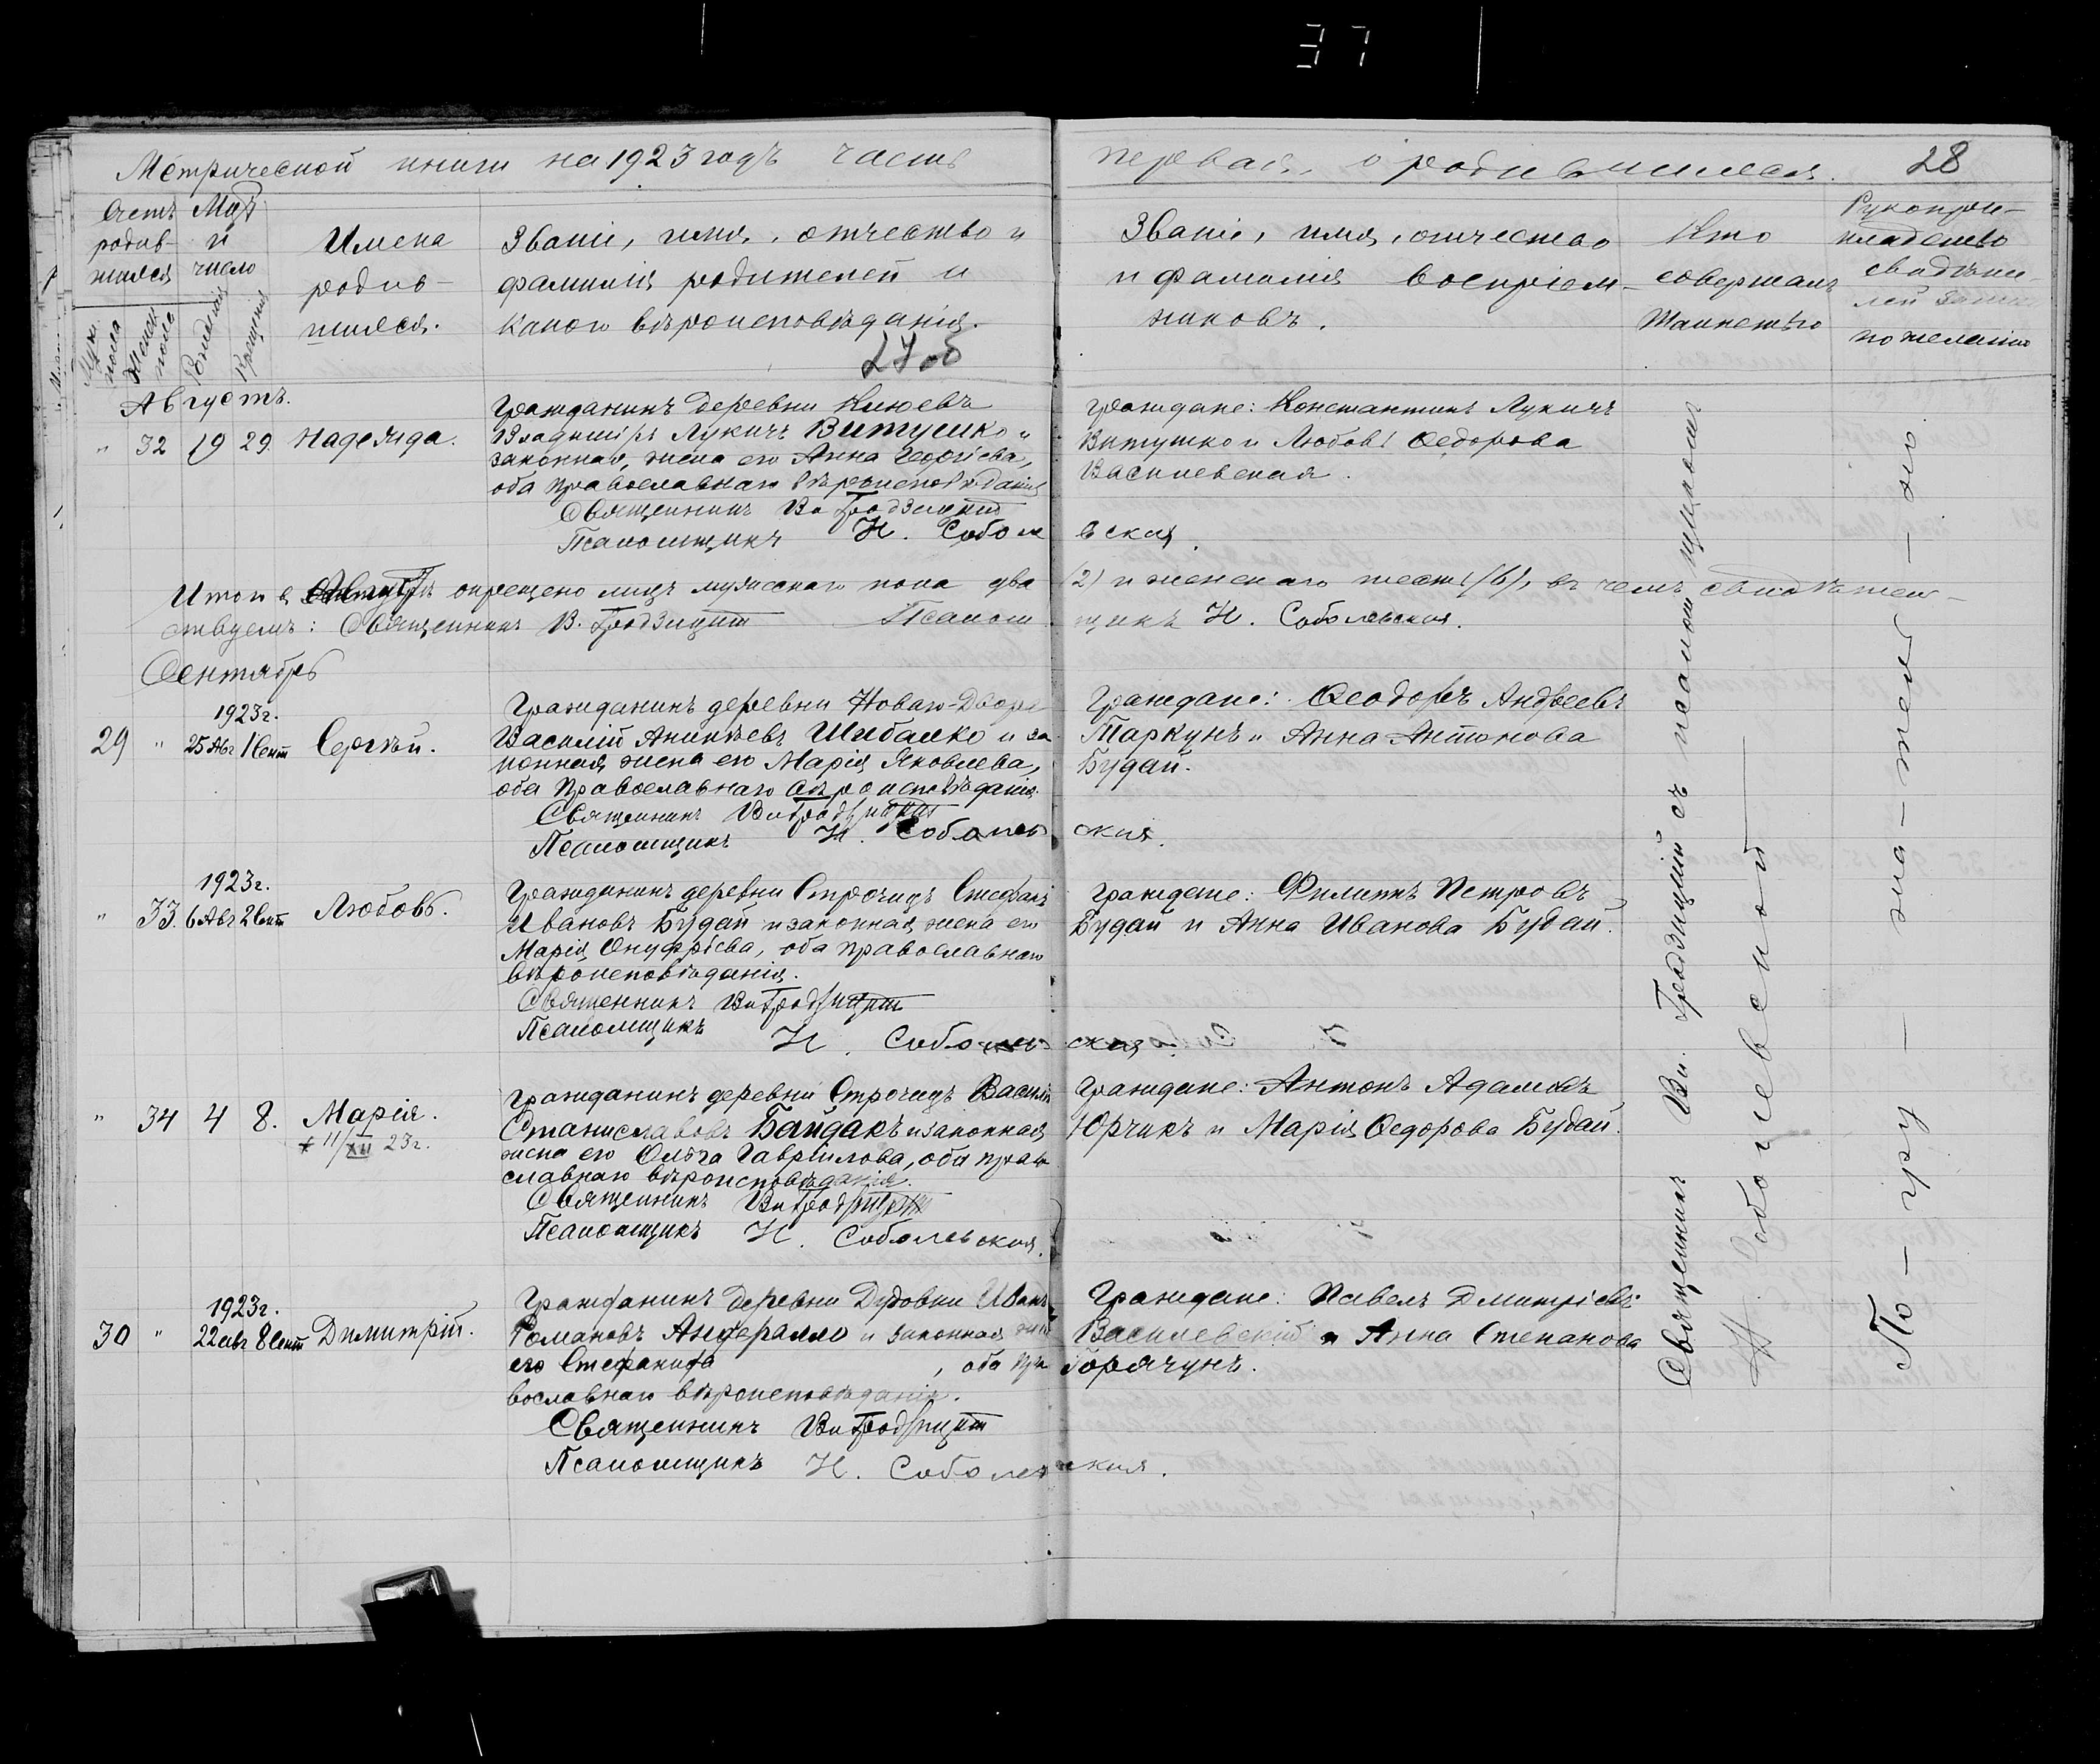 37
Метрической книги на 1923 годъ часть первая, о родившихся. 28
Счетъ родив-шихся
Муж. пола
Женск. пола
Мѣс. и число
Рожденія
Крещенія
Имена
родив-
шихся.
Званіе, имя, отчество и
фамилія родителей и
какого вѣроисповѣданія.
27об
Званіе, имя, отчество
и фамилия воспріем-
никовъ.
Кто
совершалъ
Таинство
Рукопри-
кладство
свидѣте-
лей
по желанію
Августъ.
" 32 19 29. Надежда.
Гражданинъ деревни
Владиміръ Лукичъ Витушко и
законная, жена его Анна Георгіева,
оба православнаго вѣроисповѣданія
Священникъ Ви Гродзицкій
Псаломщикъ Н. Соболевская.
Граждане: Константинъ Лукичъ
Витушко и Любовь Ѳедорова
Василевская.
Итого въ Августѣ окрещено лицъ мужескаго пола два (2) и женскаго шесть (6), въ чемъ свидѣтель-
ствуемъ: Священникъ В. Гродзицкій Псаломщикъ Н. Соболевская.
Сентябрь
29 " 1923г. 25 Авг 1 Сент Сергѣй.
Гражданинъ деревни Новаго-Двора
Василій Ананьевъ Шибалко и за-
конная жена его Марія Яковлева,
оба Православнаго вѣроисповѣданія.
Священникъ Ви Гродзицкій
Псаломщикъ Н. Соболевская.
Граждане: Ѳеодоръ Андреевъ
Таркунъ и Анна Антонова
Будай.
" 33. 1923г. 6 Авг 2 Сент Любовь.
Гражданинъ деревни Строчицъ Стефанъ
Ивановъ Будай и законная жена его
Марія Онуфріева, оба православнаго
вѣроисповѣданія.
Священникъ Ви Гродзицкій
Псаломщикъ Н. Соболевская.
Граждане: Филиппъ Петровъ
Будай и Анна Иванова Будай.
" 34 4 8. Марія.
+ 11/XII 23г.
Гражданинъ деревни Строчицъ Василій
Станиславовъ Байдакъ и законная
жена его Ольга Гавріилова, оба право-
славнаго вѣроисповѣданія.
Священникъ Ви Гродзицкій
Псаломщикъ Н. Соболевская.
Граждане: Антонъ Адамовъ
Юрчикъ и Марія Ѳедорова Будай.
30 " 1923г. 22 авг 8 Сент Димитрій.
Гражданинъ деревни Дудовки Иванъ
Романовъ Анцералло и законная жена
его Стефанида , оба пра-
вославнаго вѣроисповѣданія.
Священникъ Ви Гродзицкій
Псаломщикъ Н. Соболевская.
Граждане: Павелъ Дмитріевъ
Василевскій и Анна Степанова
Горячунъ.
Священникъ Ви. Гродзицкій съ псаломщицей
Н. Соболевской
По — гру — жа — тель — но.